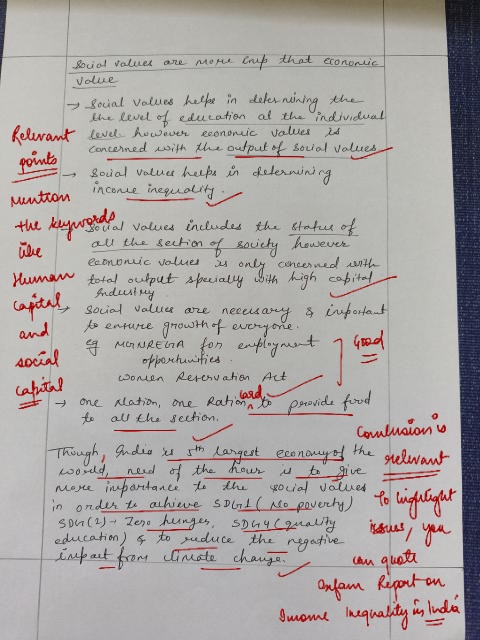 Social values are more imp that economic
value
→ Social values helps in determining the
the level of education at the individual
level however economic values is
concerned with the output of social values
→ Social values helps in determining
income inequality.
Social values includes the status of
all the section of society however
economic values is only concerned with
total output specially with high capital
industry.
→ Social values are necessary & important
to ensure growth of everyone.
eg MGNREGA for employment
opportunities.
Women Reservation Act
→ One Nation, one Ration card to provide food
to all the section.
Though, India is 5th largest economy of the
world, need of the hour is to give
more importance to the social values
in order to achieve SDG1 (No poverty)
SDG(2) → Zero hunger, SDG4 (quality
education) & to reduce the negative
impact from climate change.
Relevant
points
mention
the keywords
like
Human
capital
and
social
capital
Good
Conclusion is
relevant
To highlight
issues, you
can quote
Oxfam Report on
Income Inequality in India